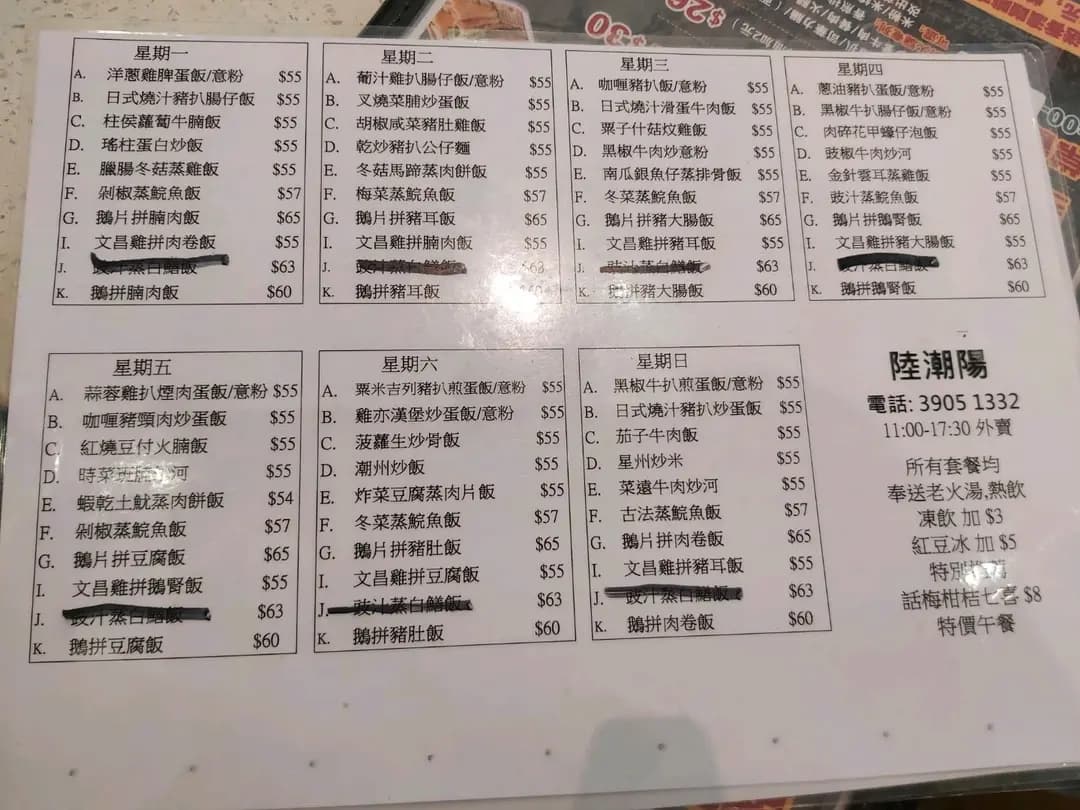 星期一
A. 洋蔥雞脾蛋飯/意粉 $55
B. 日式燒汁豬扒腸仔飯 $55
C. 柱侯蘿蔔牛腩飯 $55
D. 瑤柱蛋白炒飯 $55
E. 臘腸冬菇蒸雞飯 $55
F. 剁椒蒸鯇魚飯 $57
G. 鵝片拼腩肉飯 $65
I. 文昌雞拼肉卷飯 $55
J. 豉汁蒸白鱔飯 $63
K. 鵝拼腩肉飯 $60
星期二
A. 葡汁雞扒腸仔飯/意粉 $55
B. 叉燒菜脯炒蛋飯 $55
C. 胡椒咸菜豬肚雞飯 $55
D. 乾炒豬扒公仔麵 $55
E. 冬菇馬蹄蒸肉餅飯 $55
F. 梅菜蒸鯇魚飯 $57
G. 鵝片拼豬耳飯 $65
I. 文昌雞拼腩肉飯 $55
J. 豉汁蒸白鱔飯 $63
K. 鵝拼豬耳飯 $60
星期三
A. 咖喱豬扒飯/意粉 $55
B. 日式燒汁滑蛋牛肉飯 $55
C. 粟子什菇炆雞飯 $55
D. 黑椒牛肉炒意粉 $55
E. 南瓜銀魚仔蒸排骨飯 $55
F. 冬菜蒸鯇魚飯 $57
G. 鵝片拼豬大腸飯 $65
I. 文昌雞拼豬耳飯 $55
J. 豉汁蒸白鱔飯 $63
K. 鵝拼豬大腸飯 $60
星期四
A. 蔥油豬扒蛋飯/意粉 $55
B. 黑椒牛扒腸仔飯/意粉 $55
C. 肉碎花甲蠔仔泡飯 $55
D. 豉椒牛肉炒河 $55
E. 金針雲耳蒸雞飯 $55
F. 豉汁蒸鯇魚飯 $57
G. 鵝片拼鵝腎飯 $65
I. 文昌雞拼豬大腸飯 $55
J. 豉汁蒸白鱔飯 $63
K. 鵝拼鵝腎飯 $60
星期五
A. 蒜蓉雞扒煙肉蛋飯/意粉 $55
B. 咖喱豬頸肉炒蛋飯 $55
C. 紅燒豆付火腩飯 $55
D. 時菜班腩 河 $55
E. 蝦乾土魷蒸肉餅飯 $54
F. 剁椒蒸鯇魚飯 $57
G. 鵝片拼豆腐飯 $65
I. 文昌雞拼鵝腎飯 $55
J. 豉汁蒸白鱔飯 $63
K. 鵝拼豆腐飯 $60
星期六
A. 粟米吉列豬扒煎蛋飯/意粉 $55
B. 雞亦漢堡炒蛋飯/意粉 $55
C. 菠蘿生炒骨飯 $55
D. 潮州炒飯 $55
E. 炸菜豆腐蒸肉片飯 $55
F. 冬菜蒸鯇魚飯 $57
G. 鵝片拼豬肚飯 $65
I. 文昌雞拼豆腐飯 $55
J. 豉汁蒸白鱔飯 $63
K. 鵝拼豬肚飯 $60
星期日
A. 黑椒牛扒煎蛋飯/意粉 $55
B. 日式燒汁豬扒炒蛋飯 $55
C. 茄子牛肉飯 $55
D. 星州炒米 $55
E. 菜遠牛肉炒河 $55
F. 古法蒸鯇魚飯 $57
G. 鵝片拼肉卷飯 $65
I. 文昌雞拼豬耳飯 $55
J. 豉汁蒸白鱔飯 $63
K. 鵝拼肉卷飯 $60
陸潮陽
電話: 3905 1332
11:00-17:30 外賣
所有套餐均
奉送老火湯,熱飲
凍飲 加 $3
紅豆冰 加 $5
特別
話梅柑桔七喜 $8
特價午餐
$30